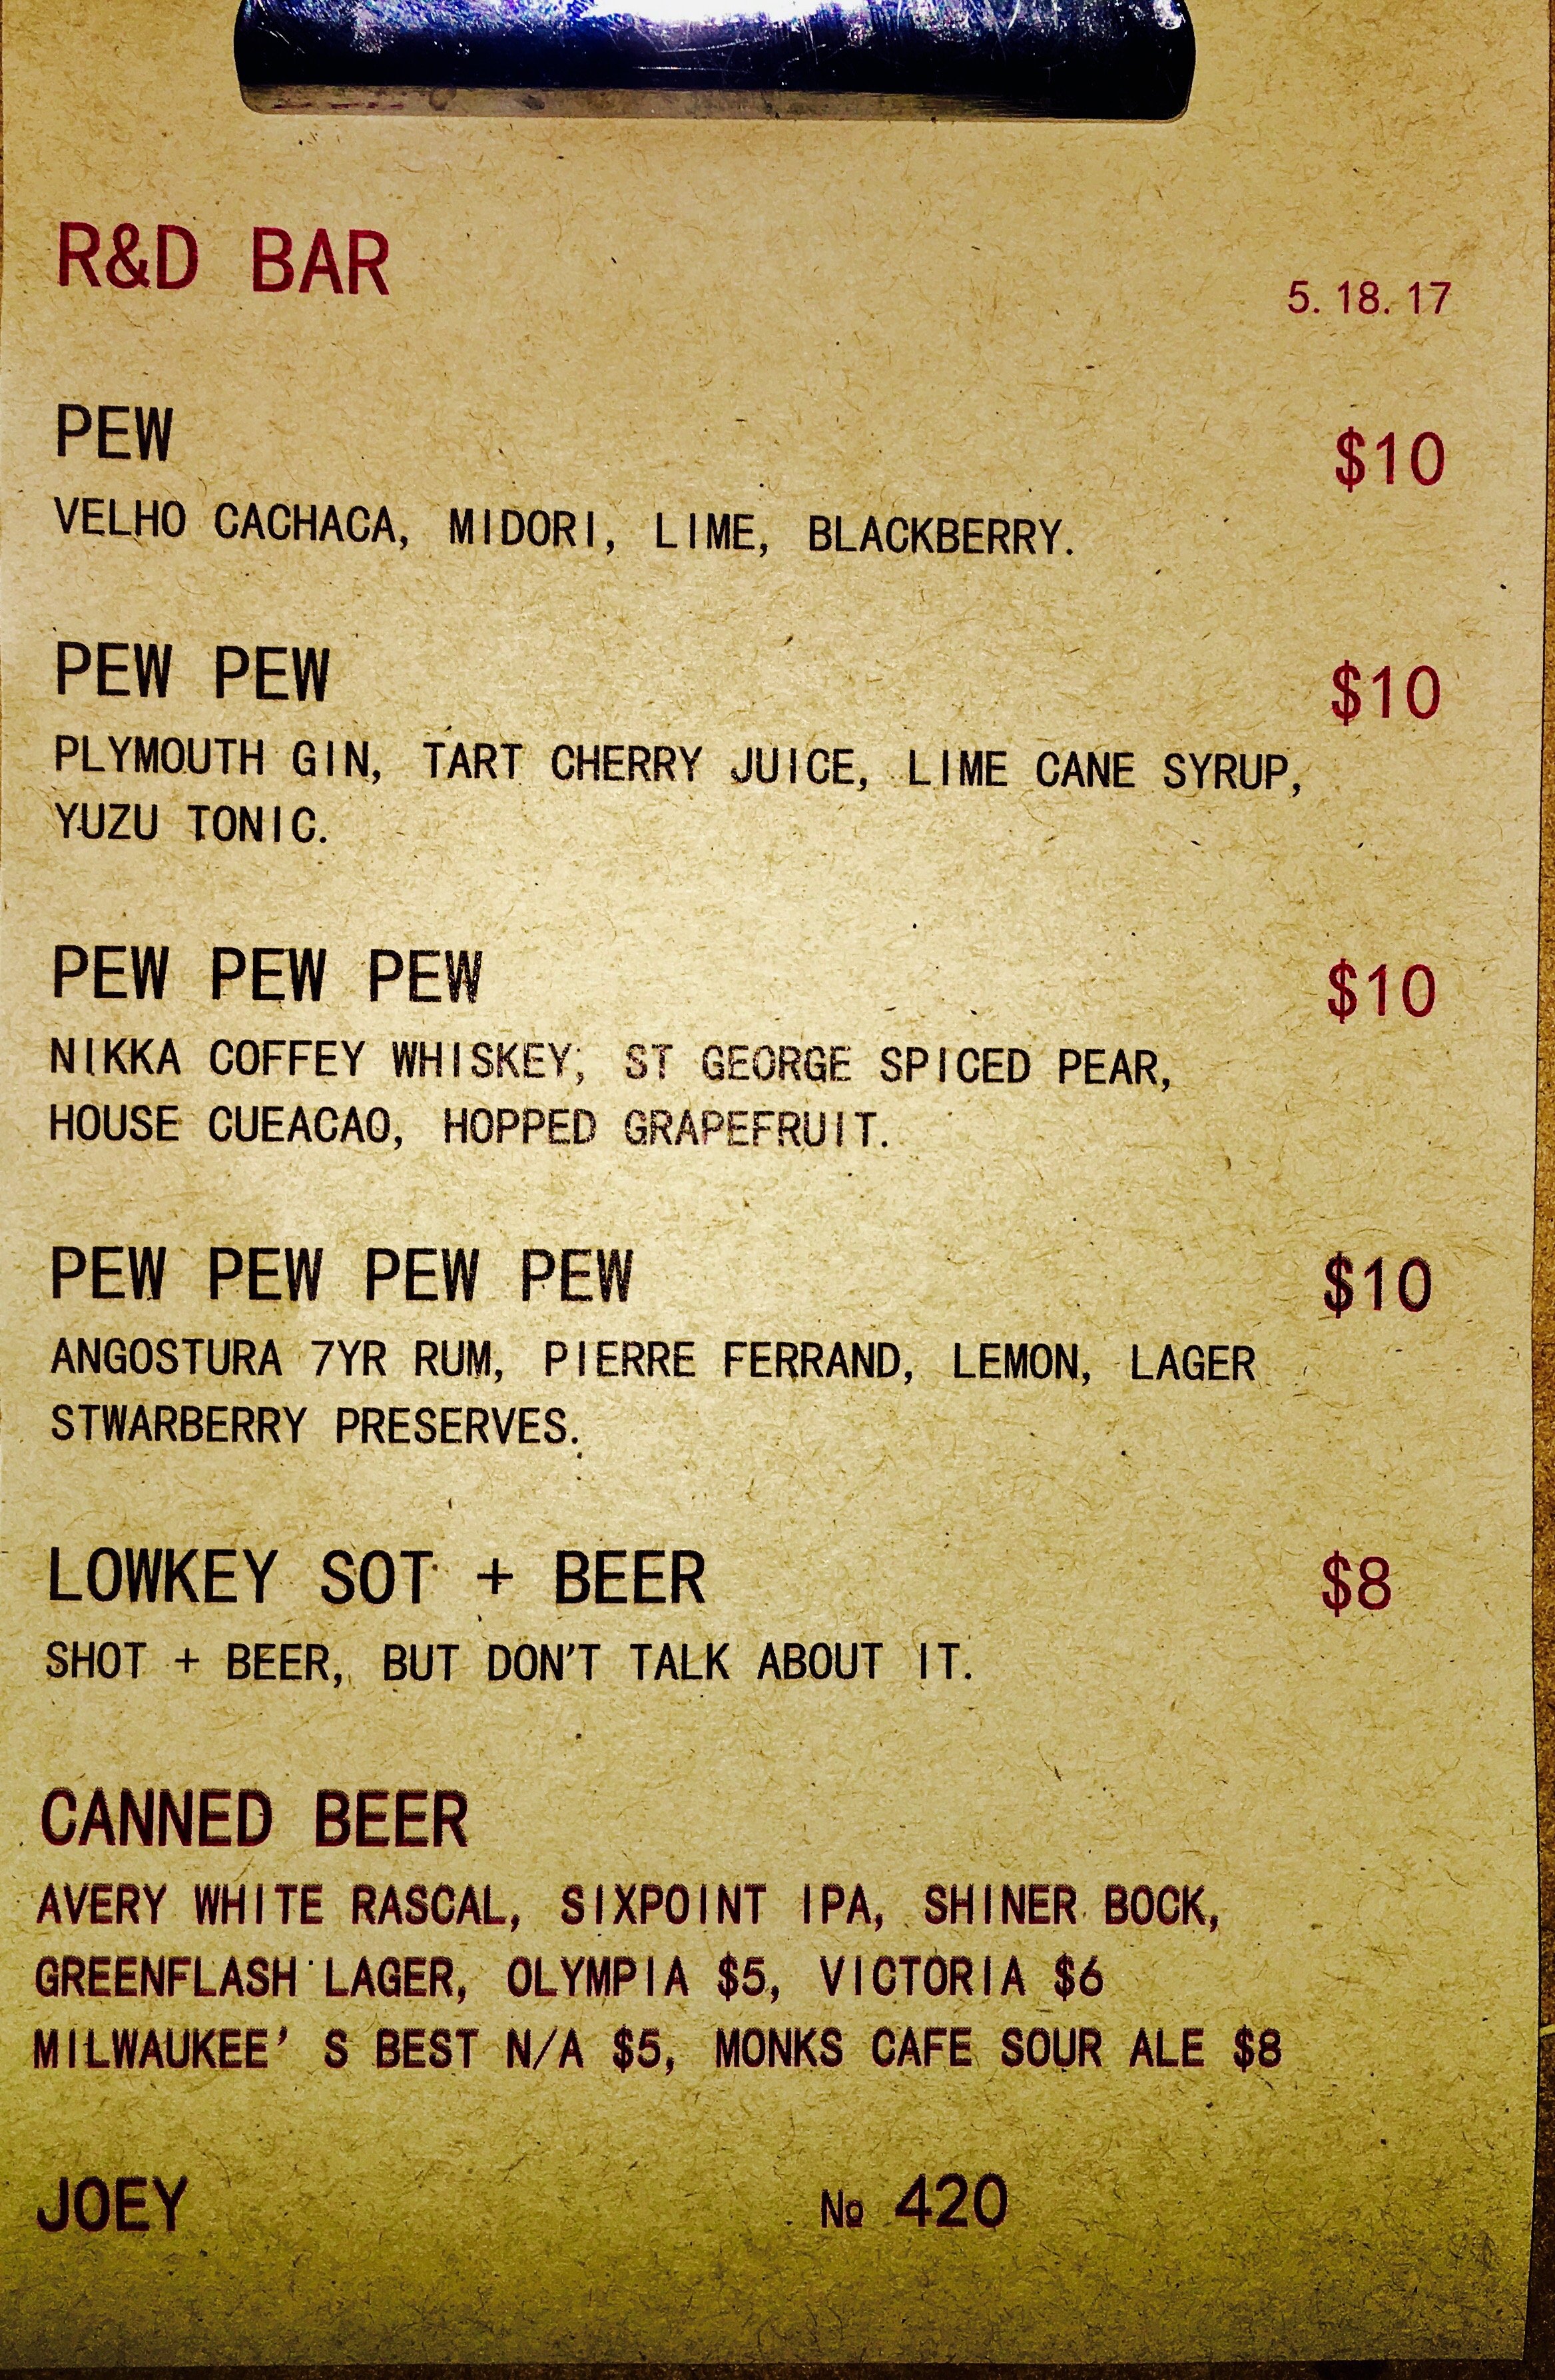 R&D BAR
5.18.17
PEW
$10
VELHO CACHACA, MIDORI, LIME, BLACKBERRY.
PEW PEW
$10
PLYMOUTH GIN, TART CHERRY JUICE, LIME CANE SYRUP,
YUZU TONIC.
PEW PEW PEW
$10
NIKKA COFFEY WHISKEY, ST GEORGE SPICED PEAR,
HOUSE CUEACAO, HOPPED GRAPEFRUIT.
PEW PEW PEW PEW
$10
ANGOSTURA 7YR RUM, PIERRE FERRAND, LEMON, LAGER
STWARBERRY PRESERVES.
LOWKEY SOT + BEER
$8
SHOT + BEER, BUT DON'T TALK ABOUT IT.
CANNED BEER
AVERY WHITE RASCAL, SIXPOINT IPA, SHINER BOCK,
GREENFLASH LAGER, OLYMPIA $5, VICTORIA $6
MILWAUKEE' S BEST N/A $5, MONKS CAFE SOUR ALE $8
JOEY
№ 420